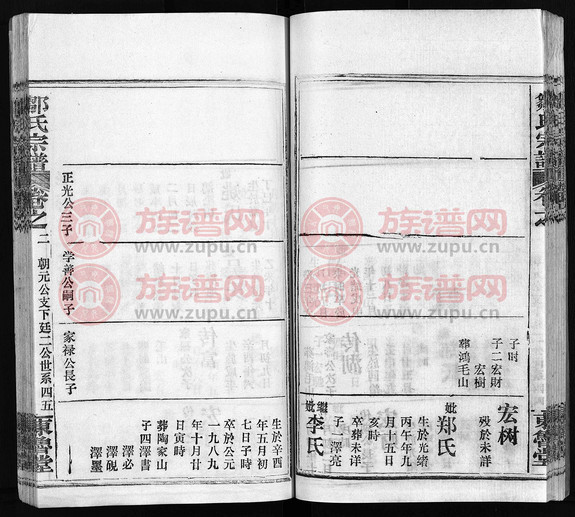 鄒氏宗譜
卷之
東魯堂
子时
子二宏財
宏樹
葬鴻毛山
宏树
殁於未詳
妣郑氏
生於光緒
丙午年九
月十五日
亥時
卒葬未详
子一澤亮
繼妣李氏
生於辛酉
年五月初
七日子時
卒於公元
一九八九
年十月廿
日寅時
葬陶家山
子四澤書
澤必
澤硯
澤墨
家禄公長子
学善公嗣子
正光公三子
鄒氏宗譜
卷之二
朝元公支下廷二公世系四五
東魯堂
族谱网
www.zupu.cn
族谱网
www.zupu.cn
族谱网
www.zupu.cn
族谱网
www.zupu.cn